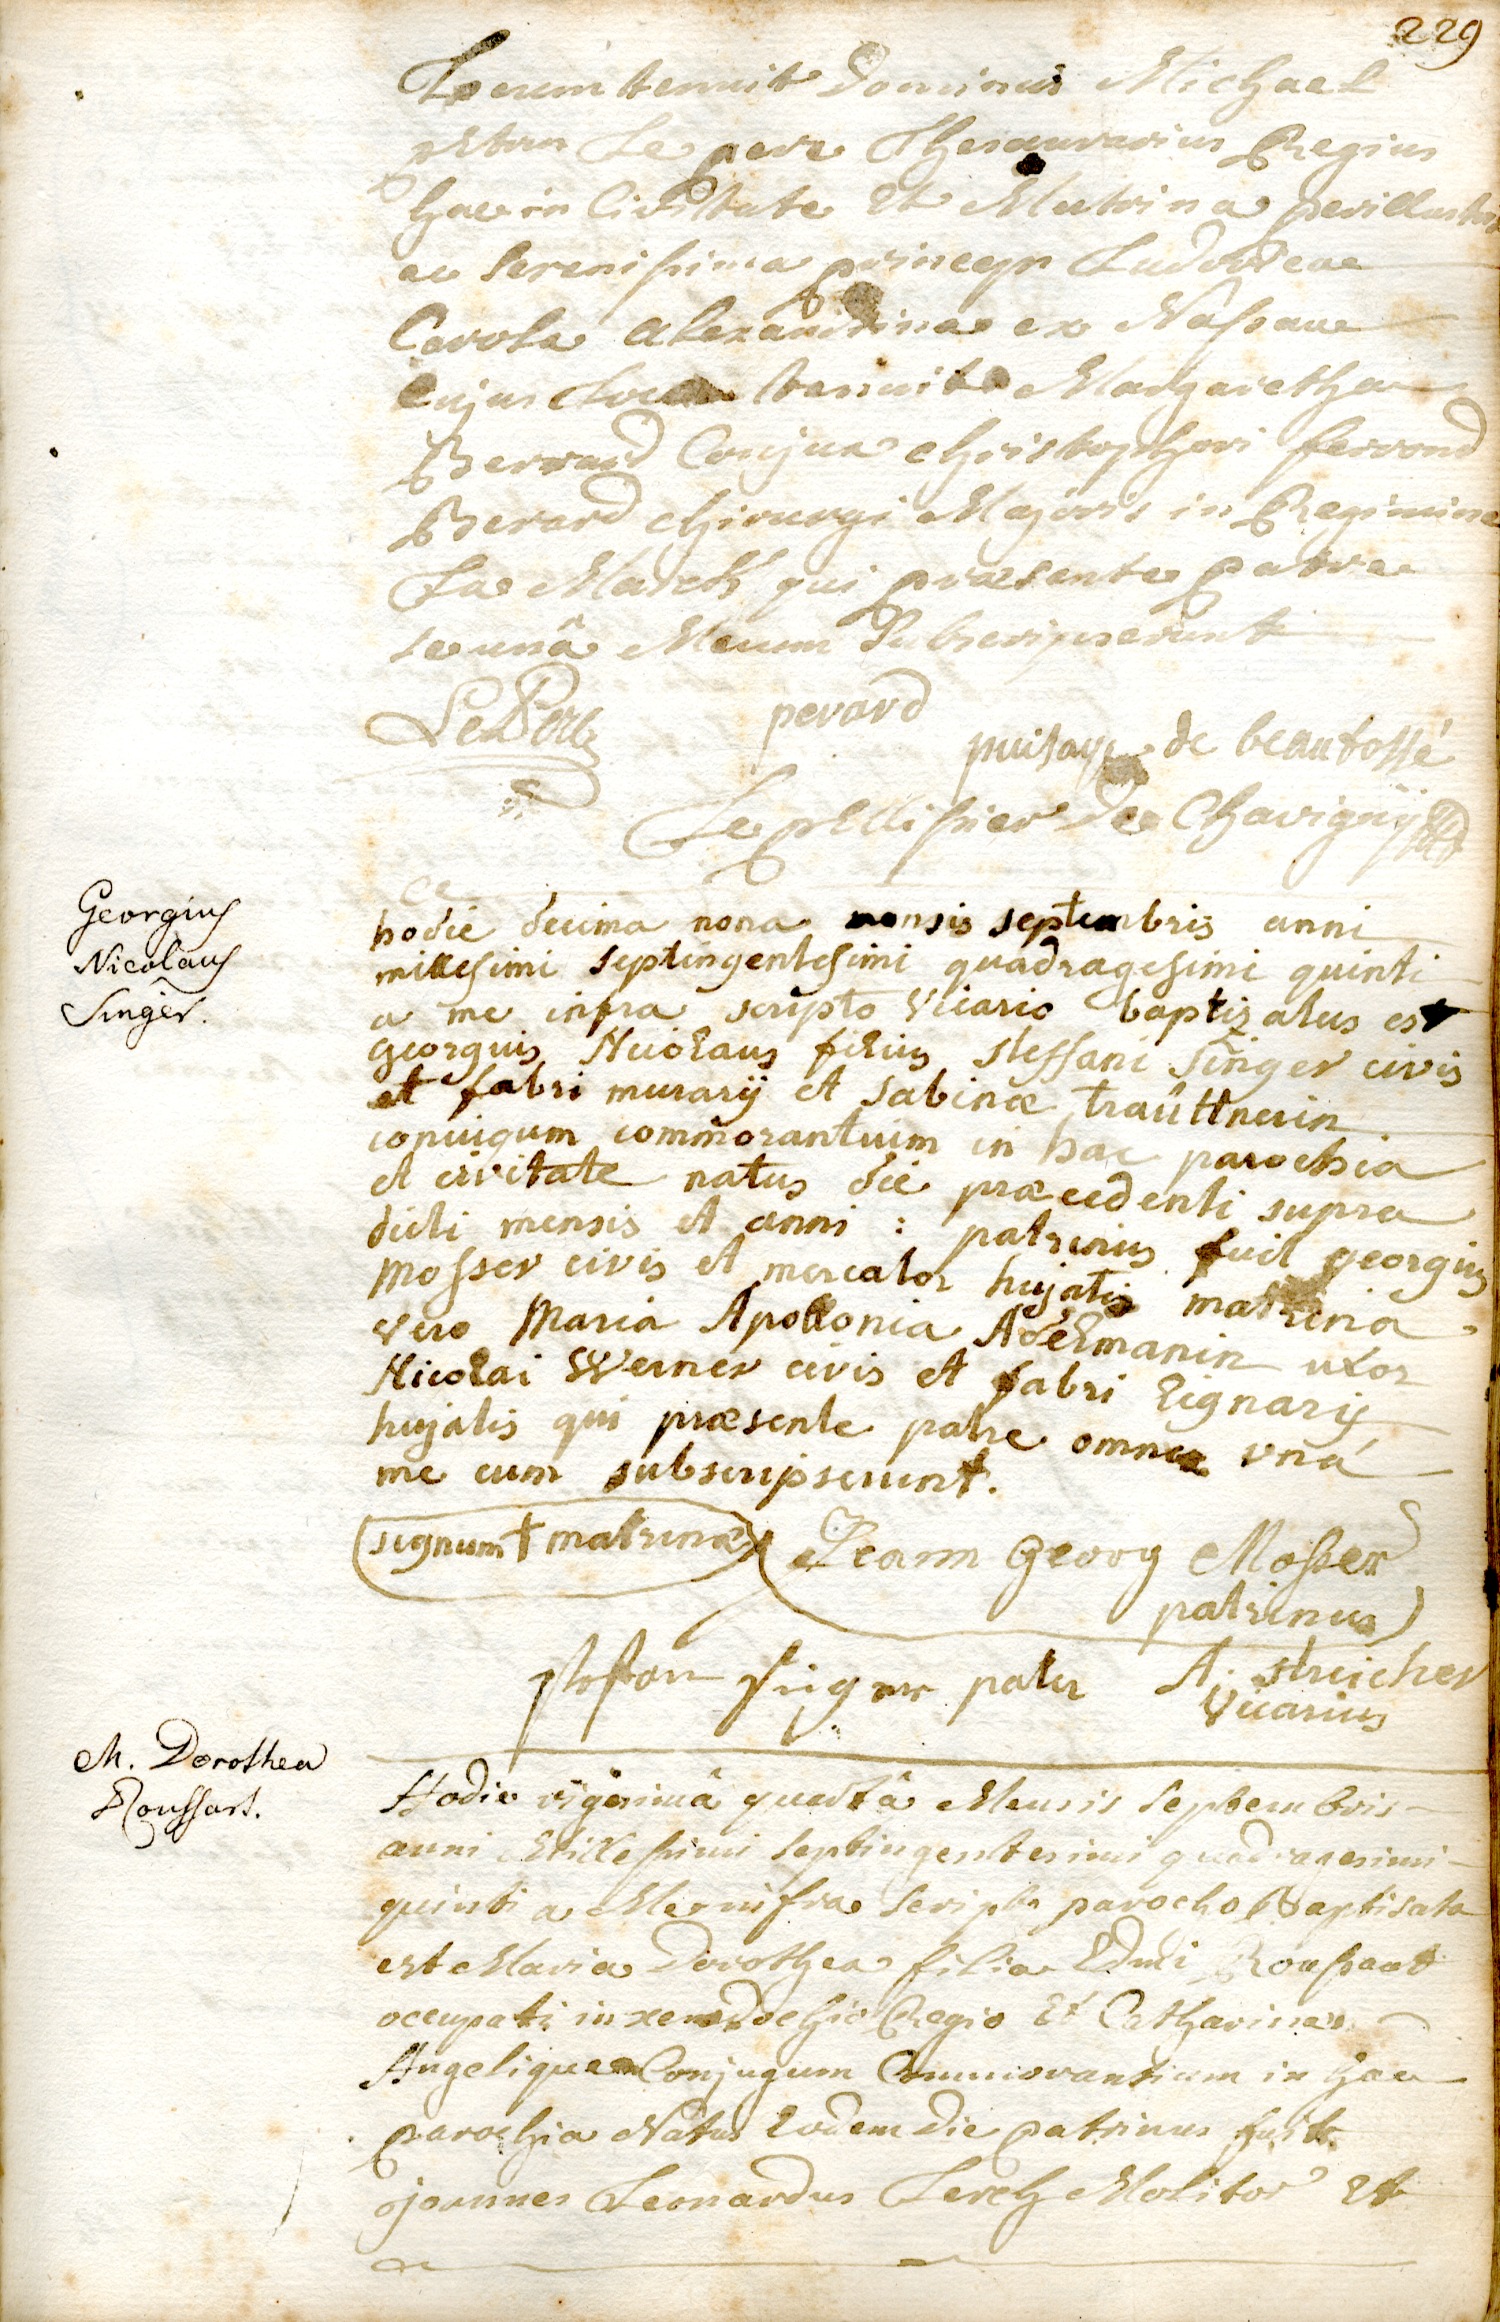 229
Locum tenuit Dominus Michael
petrus Le pere Thesaurarius Regius
hac in Civitate Et Matrina perillustris
ac serenissima princeps Ludovica
Carola Alexandrina ex Nassau
cujus Locum tenuit Margaretha
Berrard Conjux christophori ferrond
Berard chirurgi Majoris in Regimine
La March qui præsente patre
se unâ Mecum Subscripserunt
Le Pere
perard
puisaye de beaufossé
Le pellissier De Chavigny
Georgius
Nicolaus
Singer.
hodie decima nona mensis septembris anni
millesimi septingentesimi quadragesimi quinti
a me infra scripto Vicario baptizatus est
georgius Nicolaus filius steffani Singer civis
et fabri murarij et sabinæ traüttnerin
conjugum commorantium in hac parochia
et civitate natus die præcedenti supra
dicti mensis et anni : patrinus fuit georgius
Mosser civis et mercator hujatis matrina
vero Maria Apollonia Adelmanin uxor
Nicolai Werner civis et fabri lignarij
hujatis qui præsente patre omnes unâ
me cum subscripserunt.
signum + matrinæ
Joann Georg Mosser
patrinus
steffan singer pater
A. streicher
Vicarius
M. Dorothea
Roussart.
Hodie vigesimâ quartâ Mensis Septembris
anni Millesimi septingentesimi quadragesimi
quinti a Me infra Scripto parocho Baptisata
est Maria Dorothea filia Edmi Roussart
occupati in xenodochio Regio Et Catharinæ
Angelique Conjugum Commorantium in hac
parochia Natus Eodem die patrinus fuit
joannes Leonardus Lerch Molitor Et